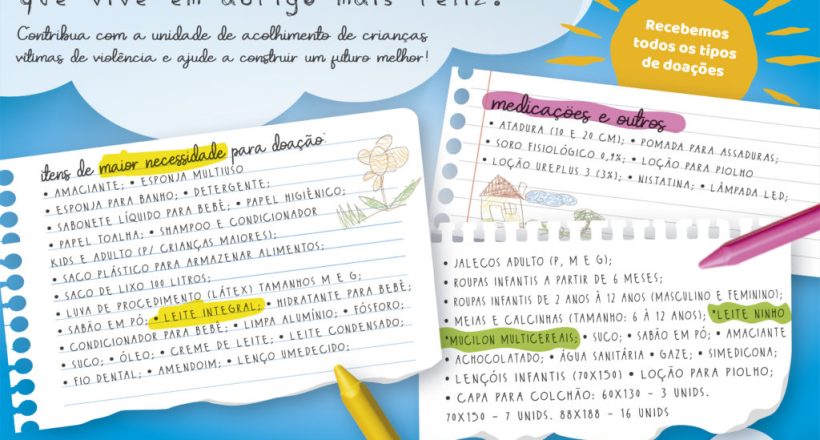 que vive em abrigo mais feliz!
Contribua com a unidade de acolhimento de crianças
vítimas de violência e ajude a construir um futuro melhor!
Recebemos
todos os tipos
de doações
itens de maior necessidade para doação:
• AMACIANTE; • ESPONJA MULTIUSO
• ESPONJA PARA BANHO; • DETERGENTE;
• SABONETE LÍQUIDO PARA BEBÊ; • PAPEL HIGIÊNICO;
• PAPEL TOALHA; • SHAMPOO E CONDICIONADOR
KIDS E ADULTO (P/ CRIANÇAS MAIORES);
• SACO PLÁSTICO PARA ARMAZENAR ALIMENTOS;
• SACO DE LIXO 100 LITROS;
• LUVA DE PROCEDIMENTO (LÁTEX) TAMANHOS M E G;
• SABÃO EM PÓ; • LEITE INTEGRAL; • HIDRATANTE PARA BEBÊ;
• CONDICIONADOR PARA BEBÊ; • LIMPA ALUMÍNIO; • FÓSFORO;
• SUCO; • ÓLEO; • CREME DE LEITE; • LEITE CONDENSADO;
• FIO DENTAL; • AMENDOIM; • LENÇO UMEDECIDO;
medicações e outros
• ATADURA (10 E 20 CM); • POMADA PARA ASSADURAS;
• SORO FISIOLÓGICO 0,9%; • LOÇÃO PARA PIOLHO
• LOÇÃO UREPLUS 3 (3%); • NISTATINA; • LÂMPADA LED;
• JALECOS ADULTO (P, M E G);
• ROUPAS INFANTIS A PARTIR DE 6 MESES;
• ROUPAS INFANTIS DE 2 ANOS À 12 ANOS (MASCULINO E FEMININO);
• MEIAS E CALCINHAS (TAMANHO: 6 À 12 ANOS); *LEITE NINHO
*MUCILON MULTICEREAIS; • SUCO; • SABÃO EM PÓ; • AMACIANTE
• ACHOCOLATADO; • ÁGUA SANITÁRIA • GAZE; • SIMEDICONA;
• LENÇÓIS INFANTIS (70X150) • LOÇÃO PARA PIOLHO;
• CAPA PARA COLCHÃO: 60X130 - 3 UNIDS.
70X150 - 7 UNIDS. 88X188 - 16 UNIDS